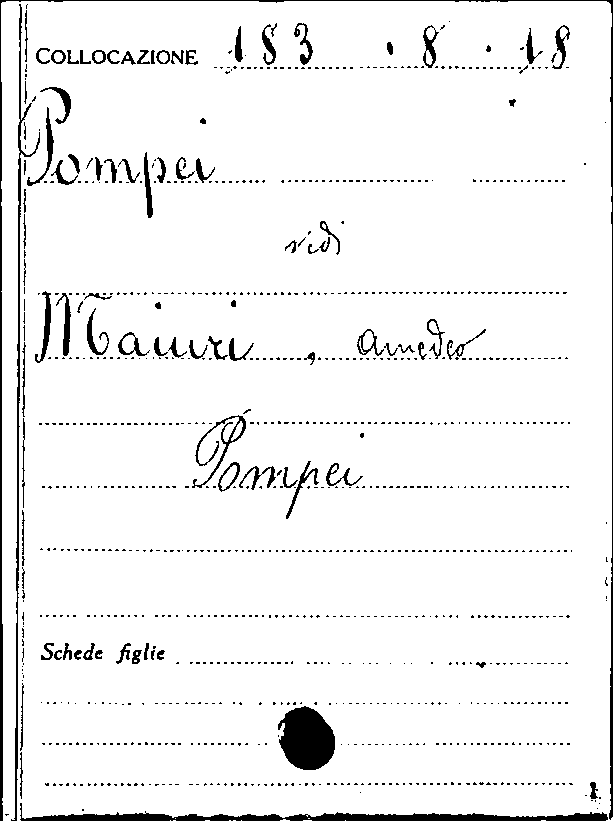 COLLOCAZIONE 183 . 8 . 18
Pompei
vidi
Maiuri, Amedeo
Pompei
Schede figlie
1